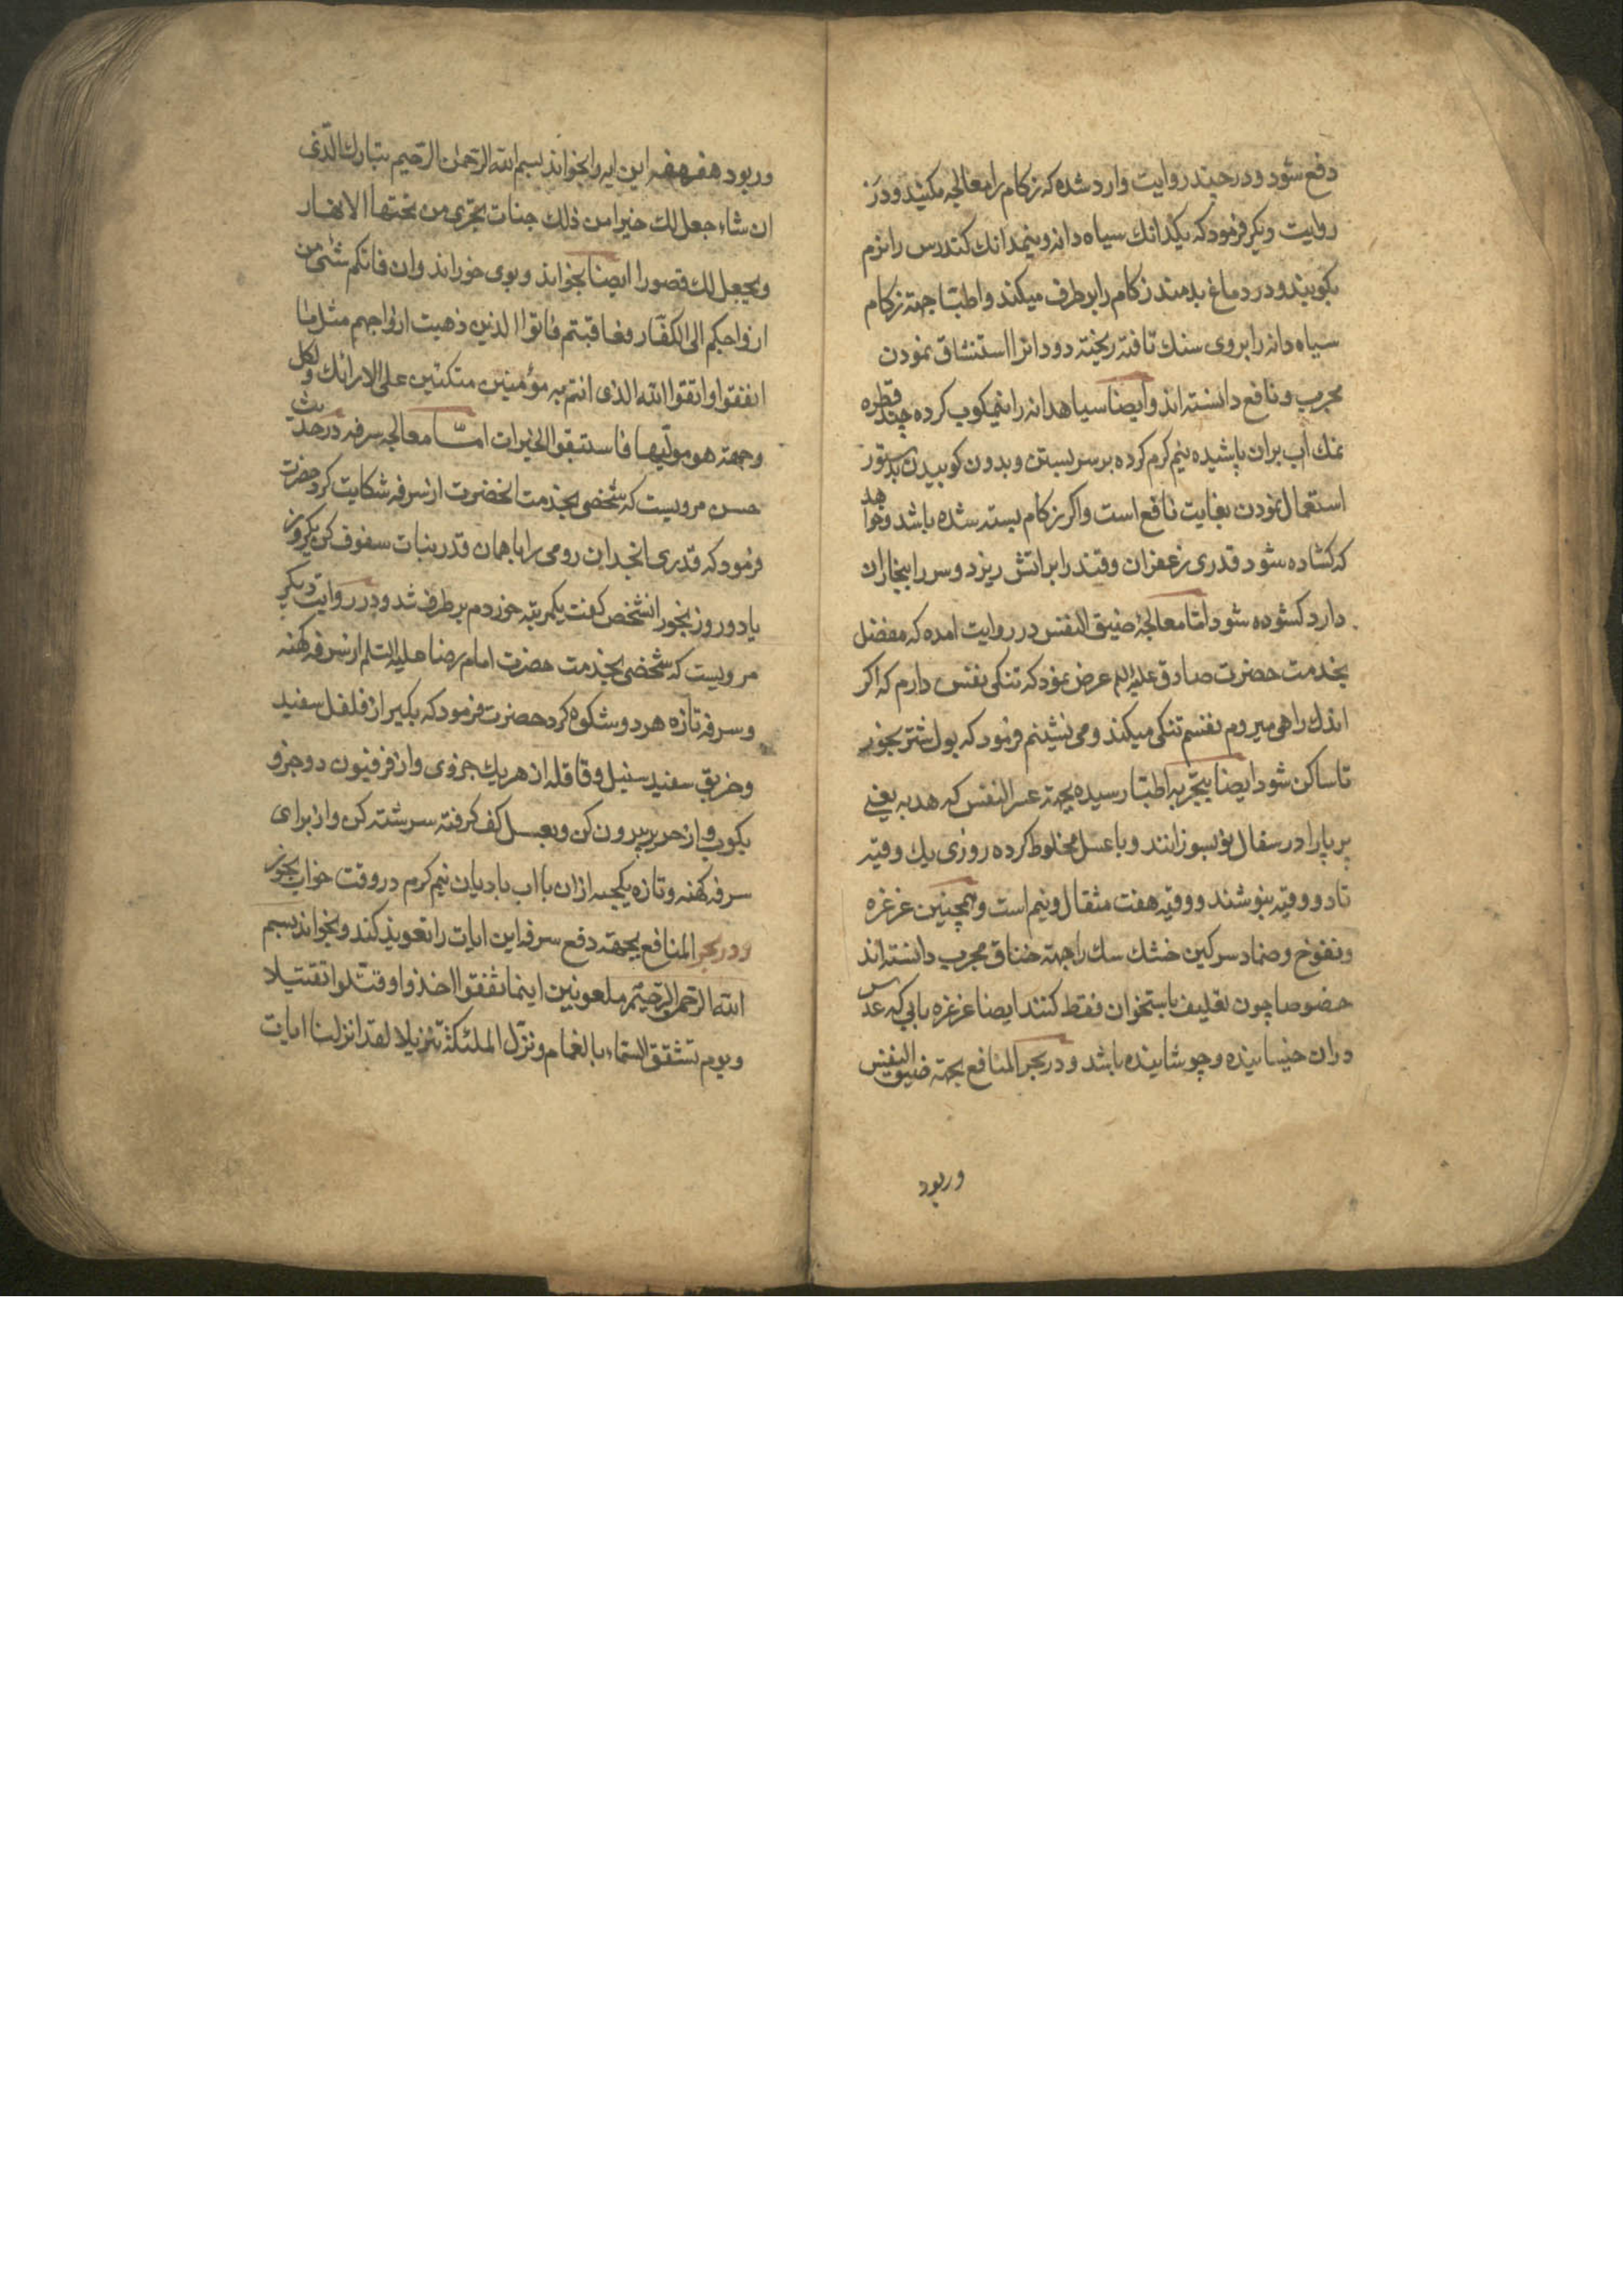 دفع شود و در چند روایت وارد شده که زکام را معالجه مکنید و در
روایت دیکر فرمود که یکدانك سیاه دانه و نیمدانك کندرس را نرم
بکوبیند و در دماغ بدمند زکام را برطرف میکند و اطبا جهته زکام
سیاه دانه را بروی سنك تافته ریخته دود انرا استنشاق نمودن
مجرب و نافع دانسته اند و ایضا سیاهدانه را نیمکوب کرده چند قطره
نمك اب بران پاشیده نیم کرم کرده بر سر بستن و بدون کوبیدن بدستور
استعمال نمودن بغایت نافع است و اکر زکام بسته شده باشد و خواهد
که کشاده شود قدری زعفران و قند را بر اتش ریزد و سر را ببخار ان
دارد کشوده شود اما معالجهٔ ضیق النفس در روایت امده که مفضل
بخدمت حضرت صادق علیه الم عرض نمود که تنکی نفس دارم که اکر
اندك راهی میروم نفسم تنکی میکند و می نشینم فرمود که بول شتر بخور
تا ساکن شود ایضا بتجربه اطبا رسیده بجهته عسر النفس که هدبه یعنی
پر پا را در سفال نو بسوزانند و با عسل مخلوط کرده روزی یك وقیه
تا دو وقیه بنوشند و وقیه هفت مثقال و نیم است و همچنین غرغره
و نفوخ و ضماد سرکین خشك سك را جهته خناق مجرب دانسته اند
خصوصا چون تعلیف باستخوان فقط کنند ایضا غرغره بابی که عدس
دران خیسانیده و جوشانیده باشد و در بحر المنافع بجهته ضیق النفس
وربود
وربود هفر هفه این ایه را بخواند بسم الله الرحمن الرحیم تبارك الذی
ان شاء جعل لك خیرا من ذلك جنات تجری من تحتها الانهار
و یجعل لك قصورا ایضا بخواند و بوی خوراند وان فاتکم شئ من
ازواجکم الی الکفار فعاقبتم فاتوا الذین ذهبت ازواجهم مثل ما
انفقوا واتقوا الله الذی انتم به مؤمنین متکئین علی الارائك و لکل
وجهته هو مولیها فاستبقوا الخیرات اما معالجه سرفه در حدیث
حسن مرویست که شخصی بخدمت انحضرت از سرفه شکایت کرد حضرت
فرمود که قدری انجدان رومی را با همان قدر نبات سفوف کن یکروز
یا دو روز بخور انشخص کفت یکمرتبه خوردم برطرف شد و در روایت دیکر
مرویست که شخصی بخدمت حضرت امام رضا علیه السلم از سرفه کهنه
و سرفه تازه هر دو شکوه کرد حضرت فرمود که بکیر از فلفل سفید
و خربق سفید سنبل و قاقله از هر یك جزوی و از فرفیون دو جزو
بکوب و از حریر بیرون کن و بعسل کف کرفته سرشته کن و از برای
سرفه کهنه و تازه یکحبه ازان با اب بادیان نیم کرم در وقت خواب بخور
و در بحر المنافع بجهته دفع سرفه این ایات را تعویذ کند و بخواند بسم
الله الرحمن الرحیم ملعونین اینما ثقفوا اخذوا و قتلوا تقتیلا
و یوم تشقق السماء بالغمام و نزل الملئکة تنزیلا لقد انزلنا ایات